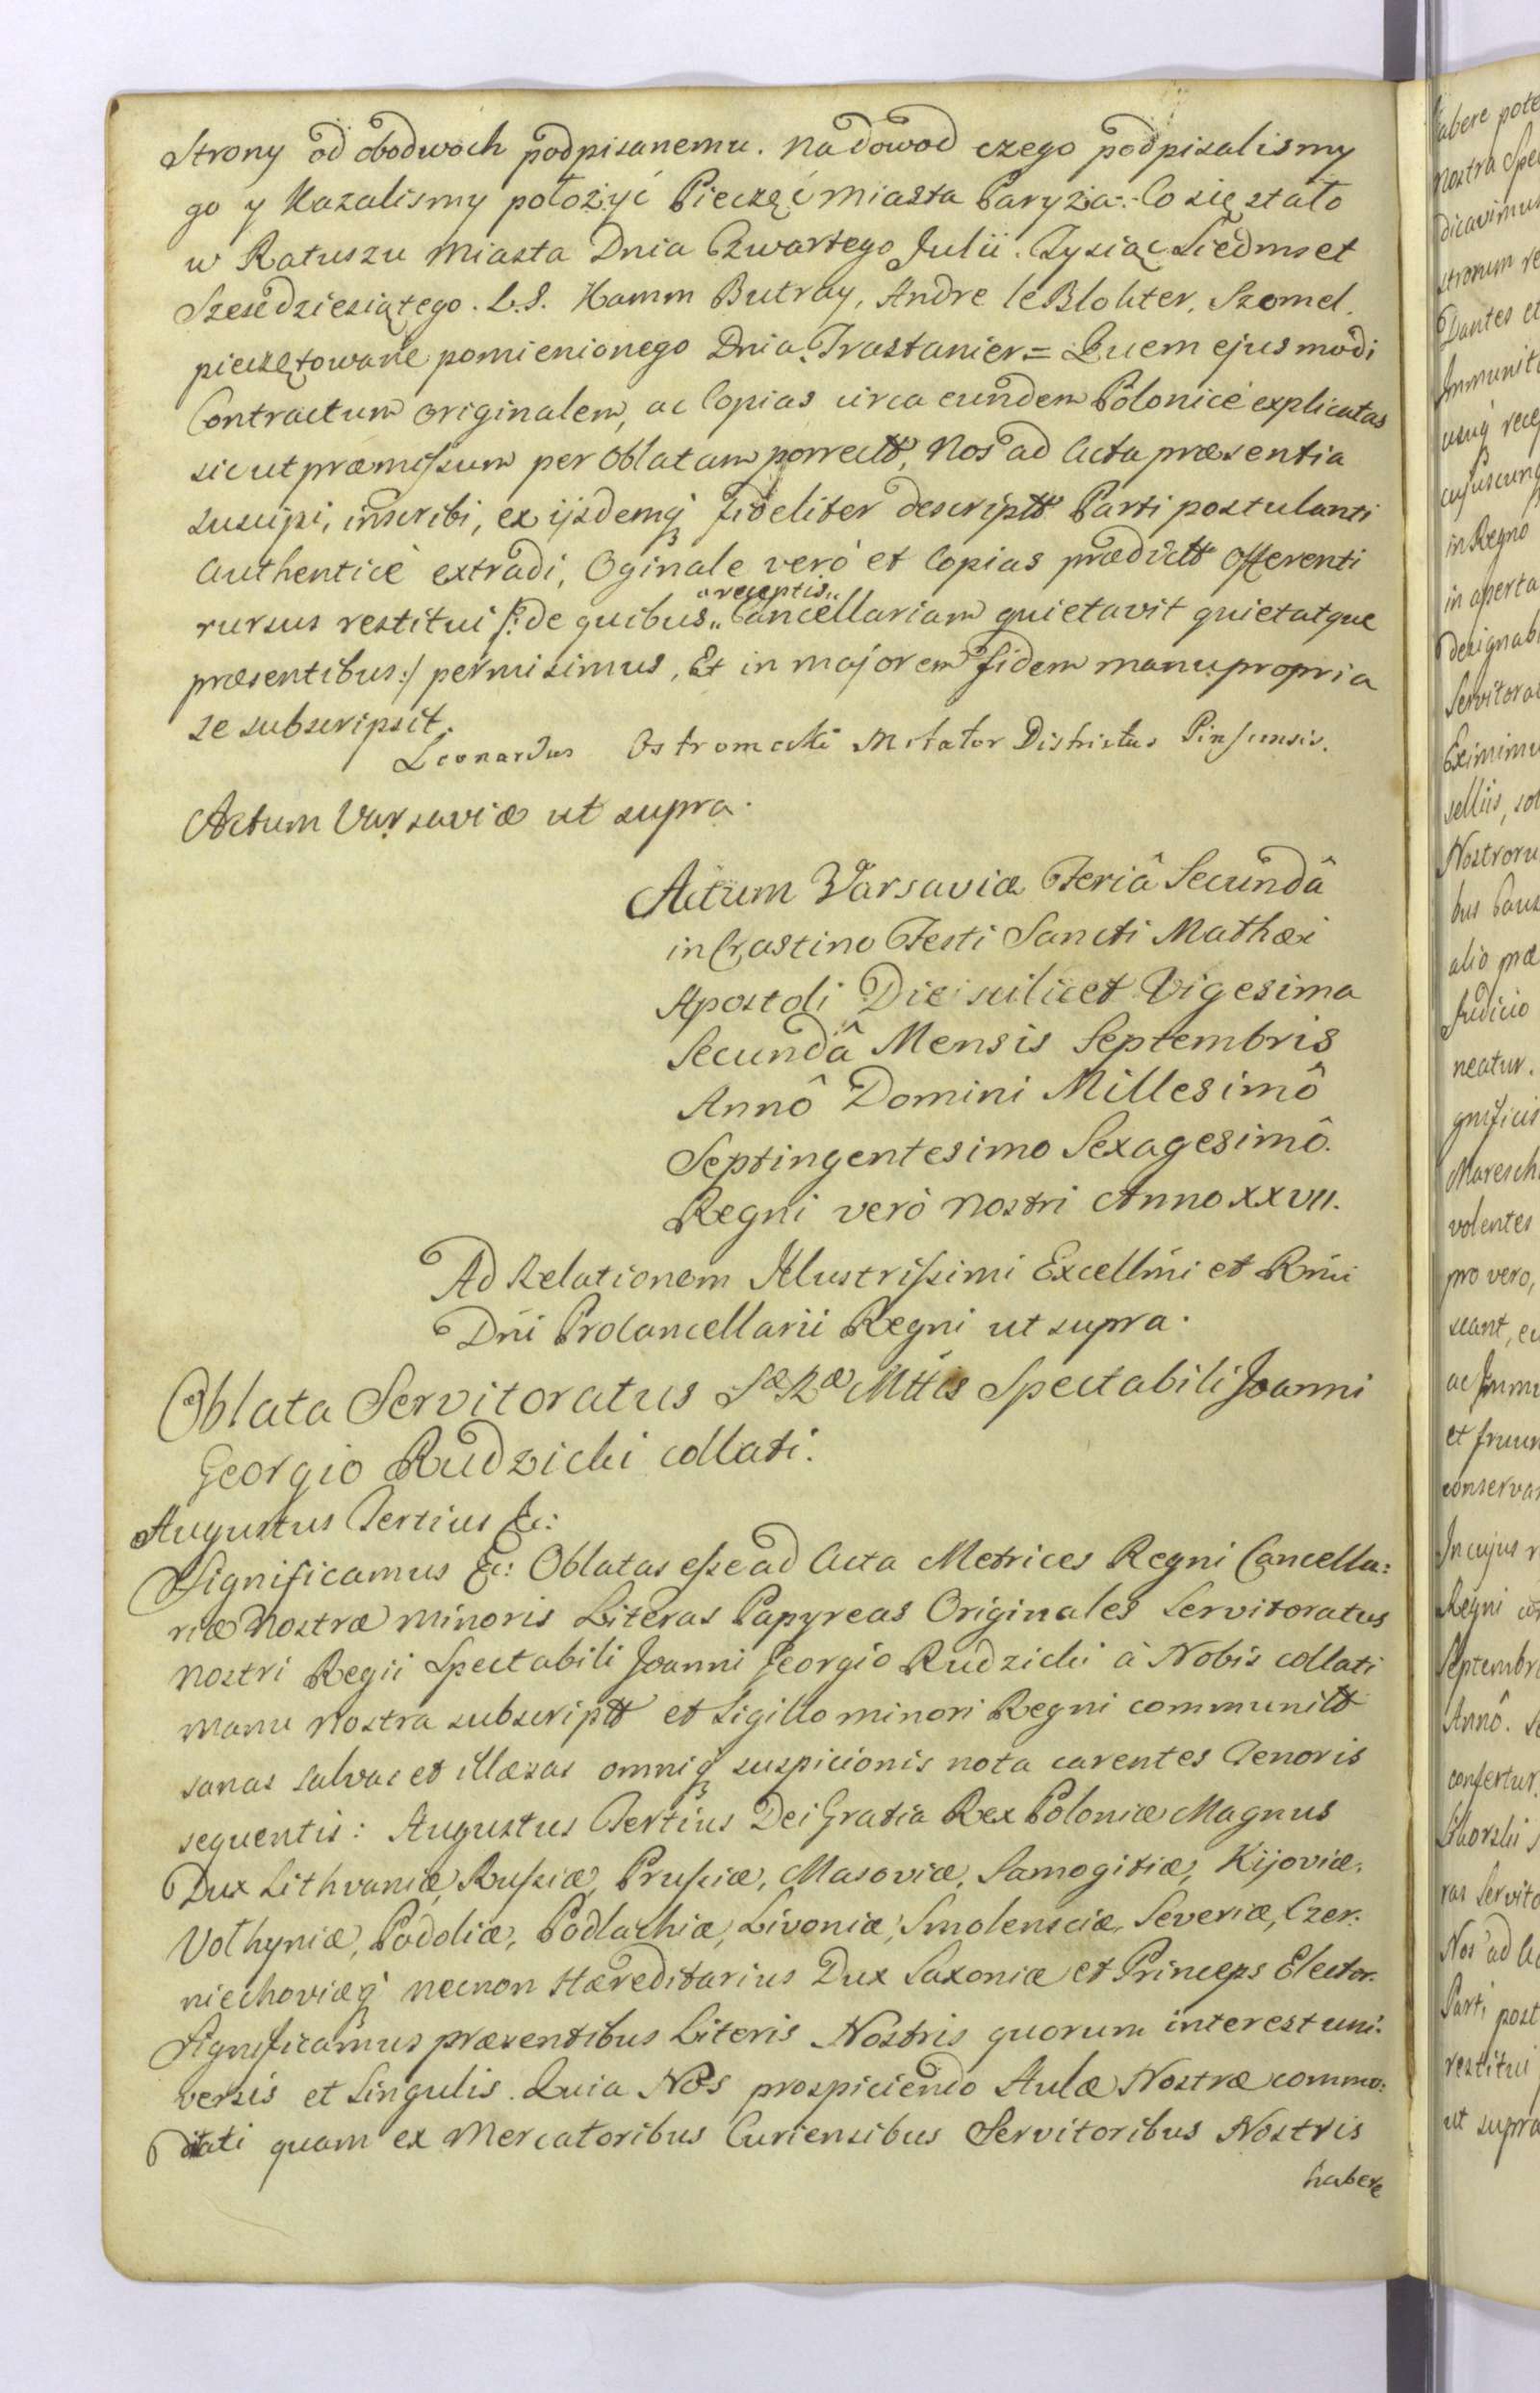 Strony od obodwoch podpisanemu. na dowod czego podpisalismy
go y Kazalismy położyć Pieczęć miasta Paryża: Co się stało
w Ratuszu miasta Dnia Czwartego Julii. Tysiąc Siedmset
Szescdziesiątego. L.S. Hamm Butray, Andre le Blohter, Szomel.
pieczętowane pomienionego Dnia. Trastanier = Quem ejusmodi
Contractum originalem, ac Copias circa eundem Polonicè explicatas
sicut præmissum per Oblatam porrectt, Nos ad Acta præsentia
suscipi, inscribi, ex ijsdemq fideliter descriptt Parti postulanti
Authenticè extradi, Oginale verò et Copias prædictt Offerenti
rursus restitui /: de quibus "receptis" Cancellariam quietavit quietatque
præsentibus :/ permisimus, Et in majorem fidem manu propria
se subscripsit.
Leonardus Ostromecki Metator Districtus Pinscensis.
Actum Varsaviæ ut supra.
Actum Varsaviæ Feriâ Secundâ
in Crastino Festi Sancti Mathæi
Apostoli Die scilicet Vigesima
Secundâ Mensis Septembris
Annô Domini Millesimô
Septingentesimo Sexagesimô.
Regni verò nostri Anno XXVII.
Ad Relationem Illustrissimi Excellmi et Rmi
Dni Procancellarii Regni ut supra.
Oblata Servitoratus Sæ Ræ Mttis Spectabili Joanni
Georgio Rudzicki collati.
Augustus Tertius &c:
Significamus &c: Oblatas esse ad Acta Metrices Regni Cancella:
riæ Nostræ minoris Literas Papyreas Originales Servitoratus
nostri Regii Spectabili Joanni Georgio Rudzicki à Nobis collati
manu nostra subscriptt et Sigillo minori Regni communitt
sanas salvas et illæsas omniq suspicionis nota carentes Tenoris
sequentis: Augustus Tertius Dei Gratia Rex Poloniæ Magnus
Dux Lithvaniæ, Russiæ, Prussiæ, Masoviæ, Samogitiæ, Kijoviæ,
Volhyniæ, Podoliæ, Podlachiæ, Livoniæ, Smolensciæ, Severiæ, Czer:
niechoviæq necnon Hæreditarius Dux Saxoniæ et Princeps Elector.
Significamus præsentibus Literis Nostris quorum interest uni:
versis et Singulis. Quia Nos prospiciendo Aulæ Nostræ commo:
ditati quam ex Mercatoribus Curiensibus Servitoribus Nostris
habere